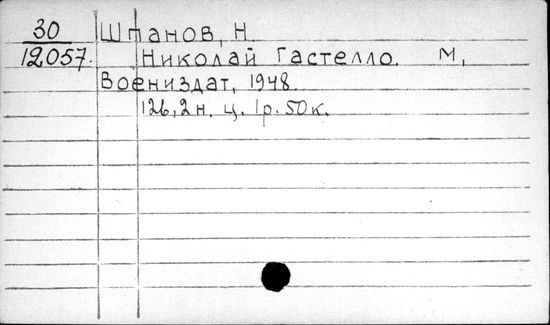 30 Шпанов, Н.
12057. Николай Гастелло. М,
Воениздат, 1948.
126, 2 н. ц. 1р. 50к.